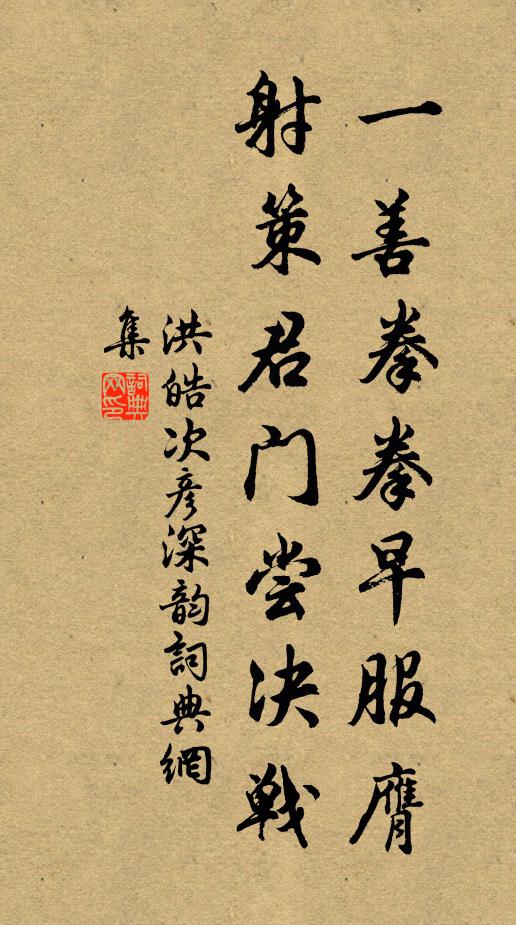 一善拳拳早服膺
射策君门尝决戦
洪皓次彦深韵詞典網
集
詞典网印